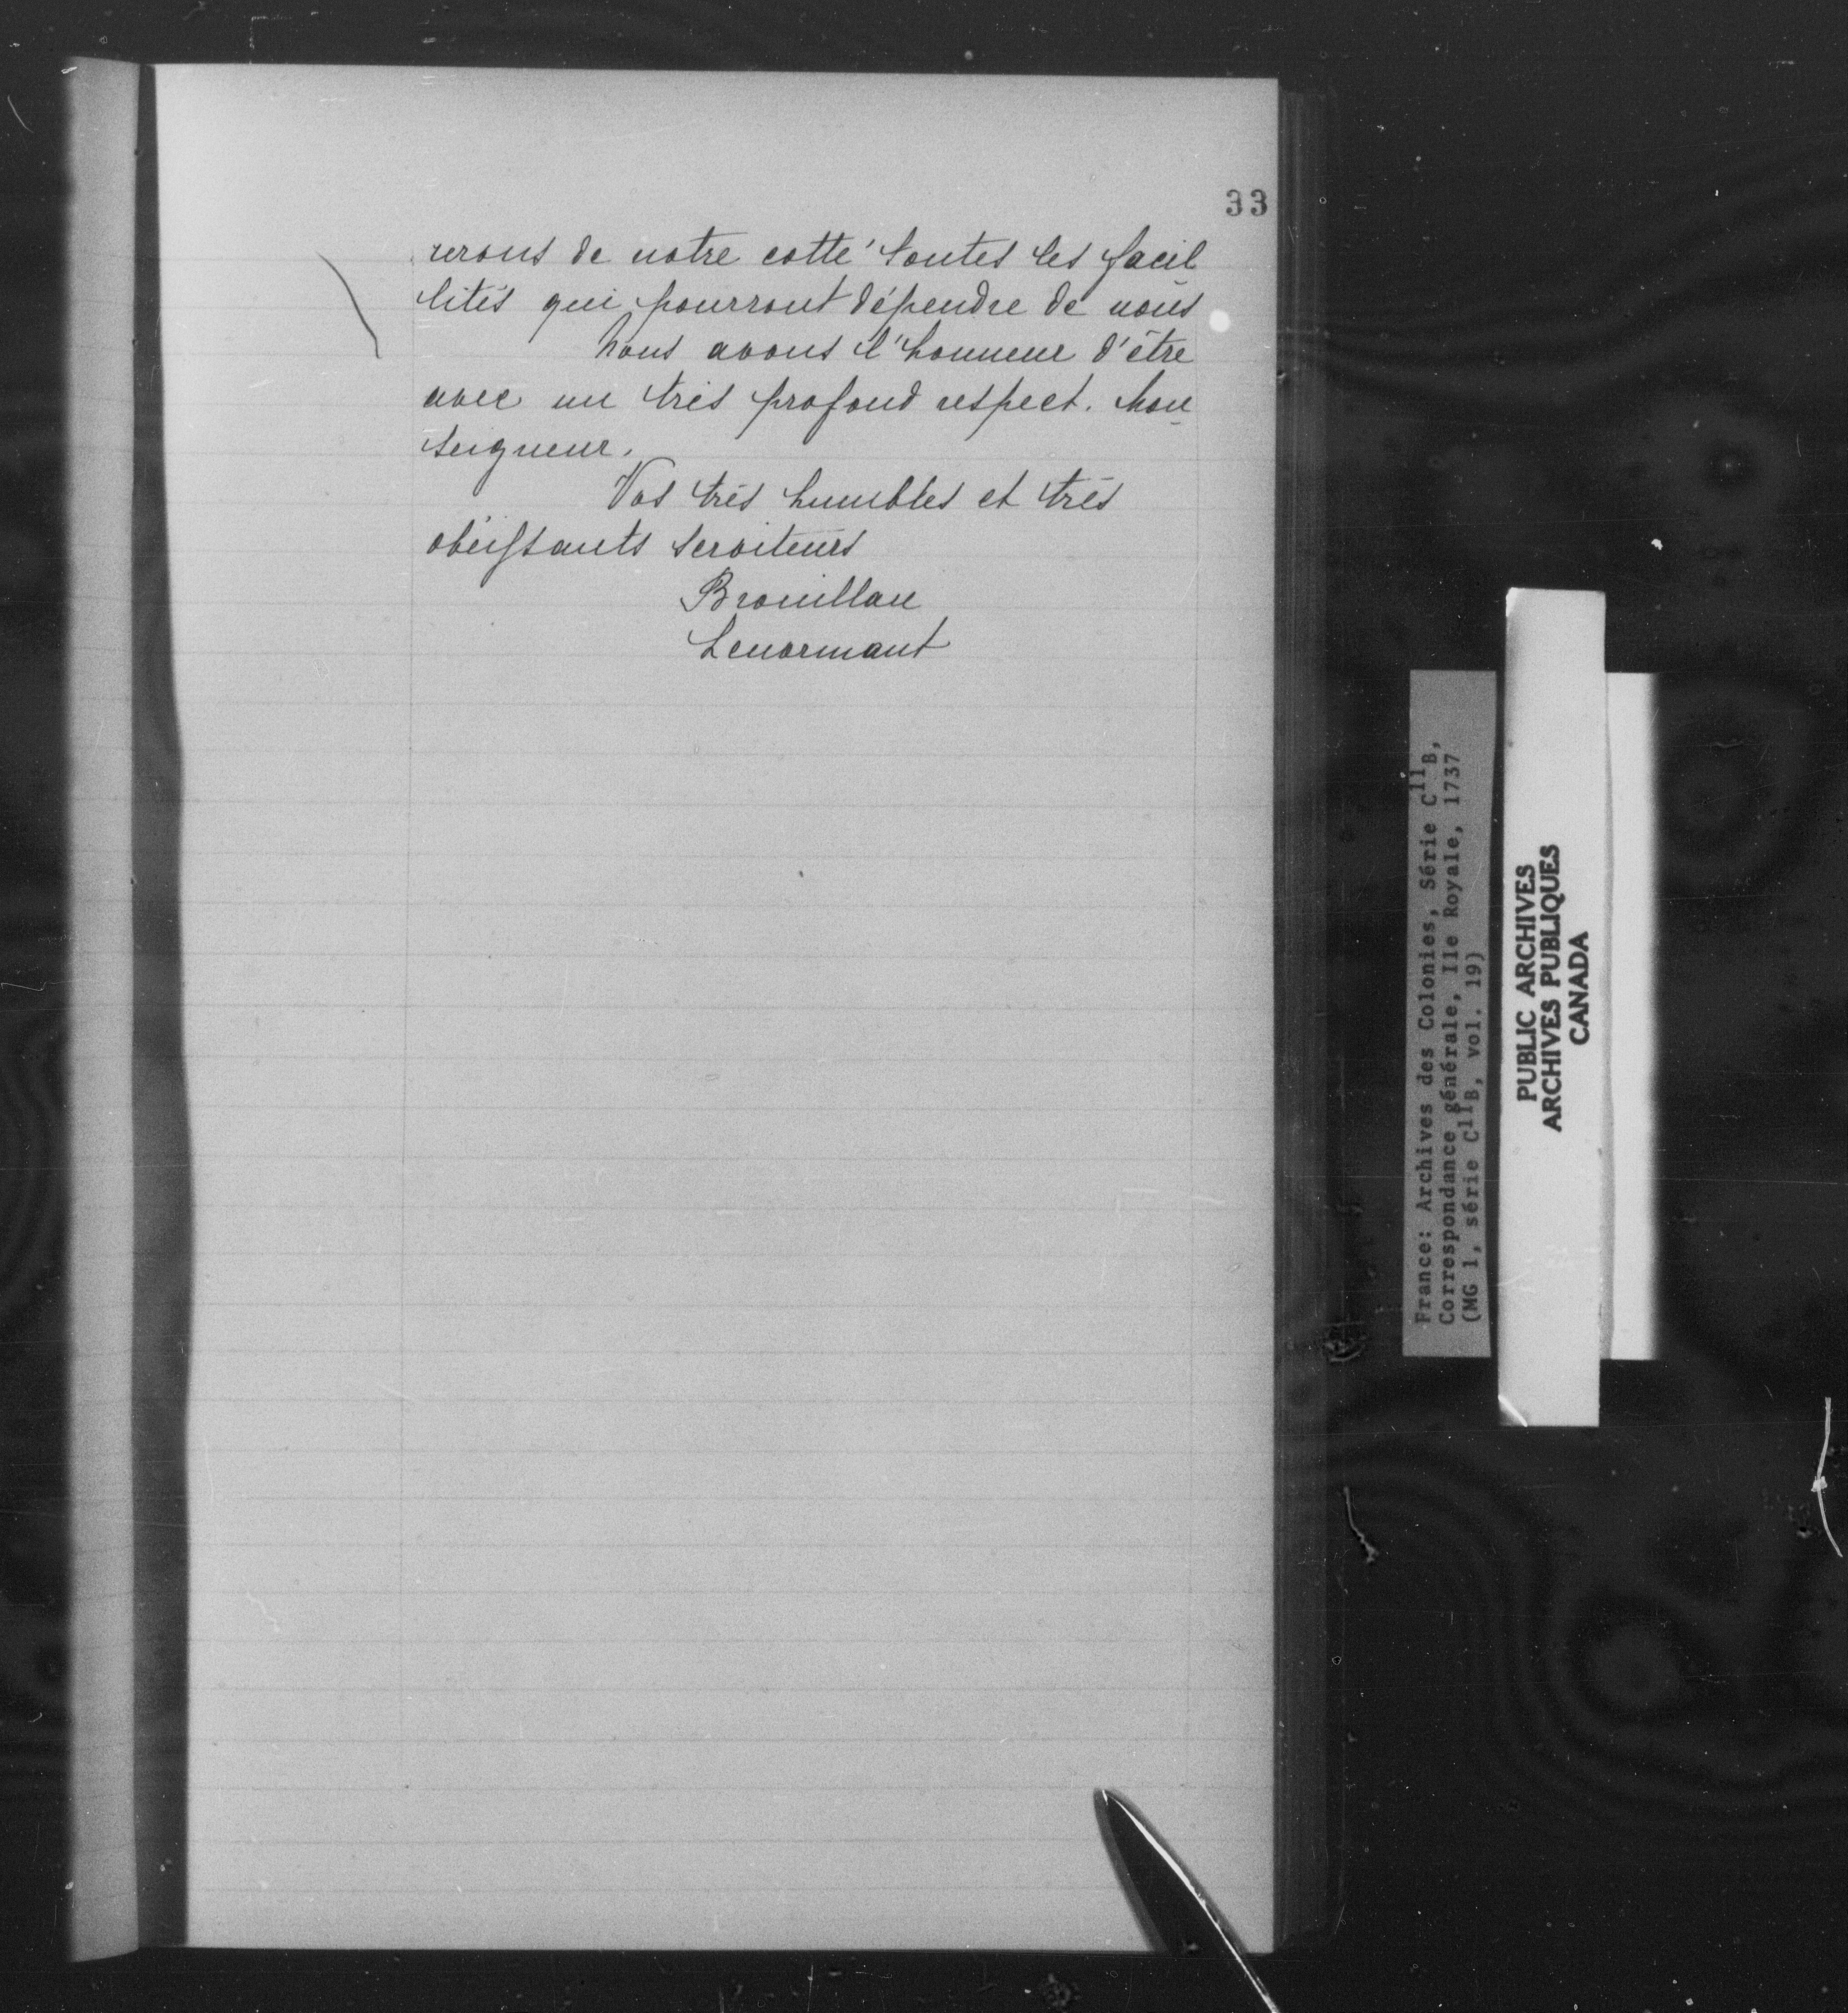 33
rerons de notre cotté toutes les facil
lités qui pourront dépendre de nous
Nous avons l'honneur d'être
avec un très profond respect. Mon
seigneur.
Vos très humbles et très
obéissants serviteurs
Brouillan
Lenormant
France: Archives des Colonies, Série C11B,
Correspondance générale, Ile Royale, 1737
(MG 1, série C11B, vol. 19)
PUBLIC ARCHIVES
ARCHIVES PUBLIQUES
CANADA